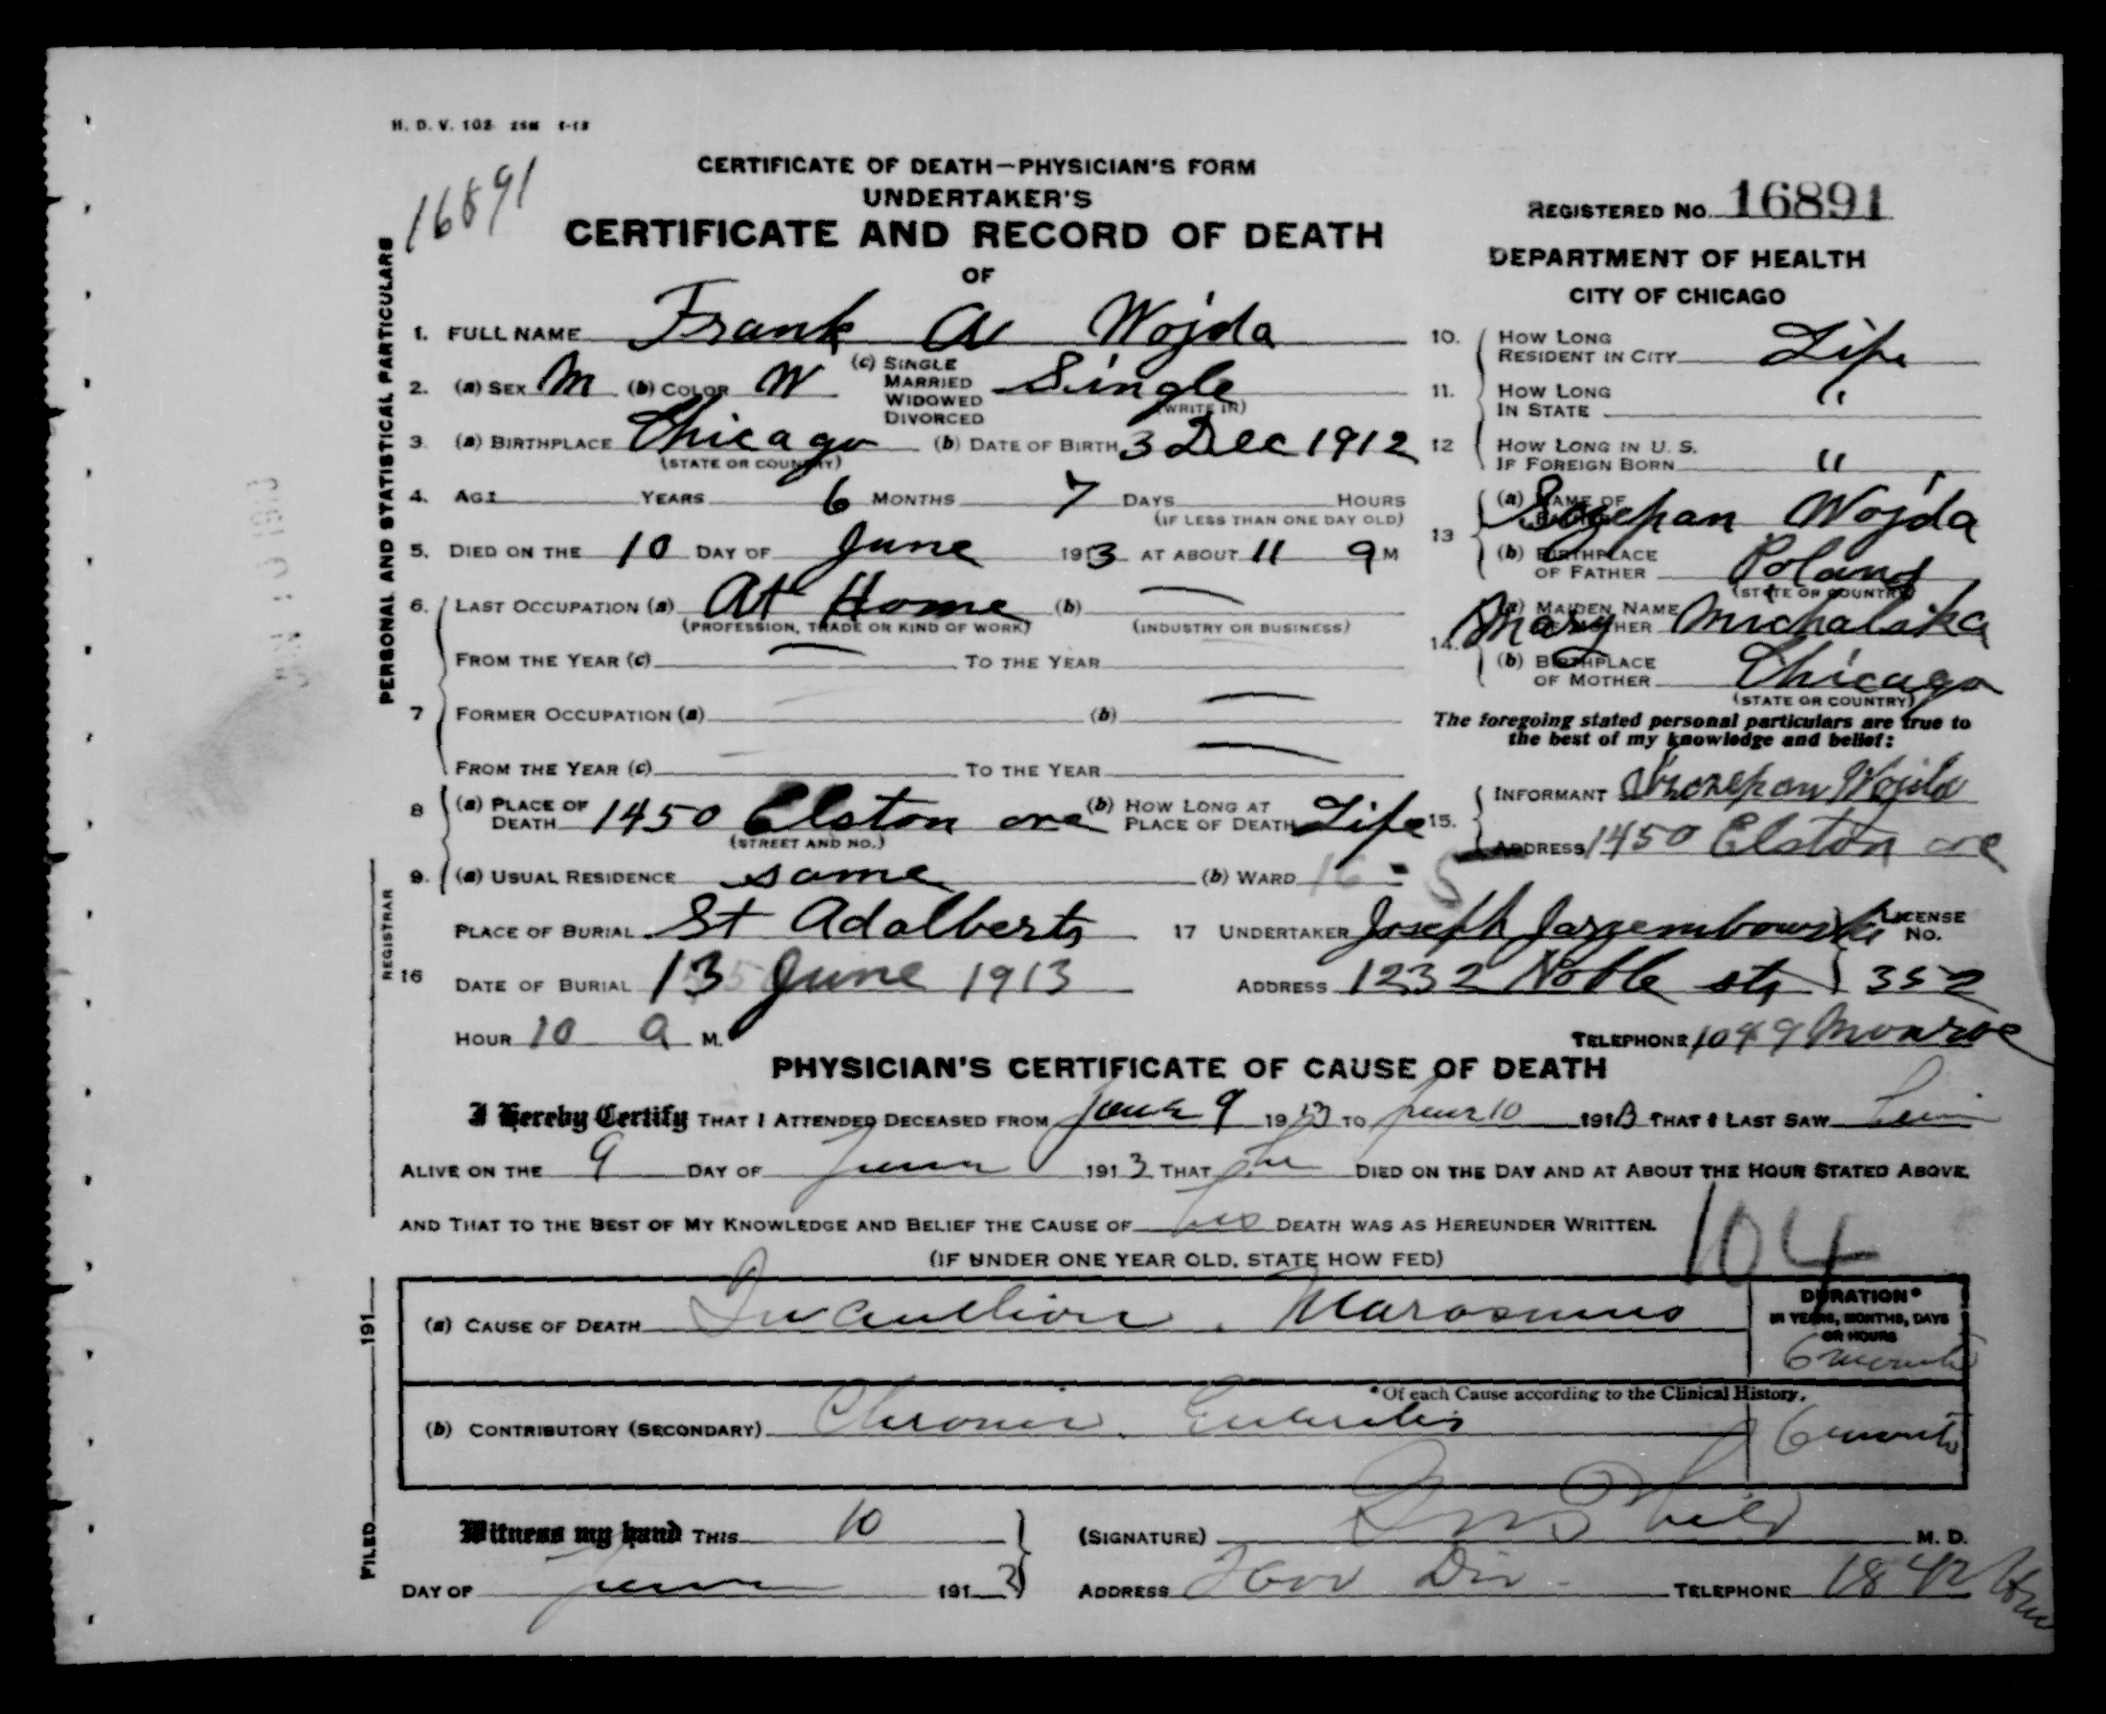 H. D. V. 102 25M 1-13
16891
CERTIFICATE OF DEATH—PHYSICIAN'S FORM
UNDERTAKER'S
CERTIFICATE AND RECORD OF DEATH
OF
REGISTERED NO. 16891
DEPARTMENT OF HEALTH
CITY OF CHICAGO
PERSONAL AND STATISTICAL PARTICULARS
1. FULL NAME Frank A Wojda
2. (a) SEX M (b) COLOR W (c) SINGLE MARRIED WIDOWED DIVORCED Single
(WRITE IN)
3. (a) BIRTHPLACE Chicago (b) DATE OF BIRTH 3 Dec 1912
(STATE OR COUNTRY)
4. AGE YEARS 6 MONTHS 7 DAYS HOURS
(IF LESS THAN ONE DAY OLD)
5. DIED ON THE 10 DAY OF June 1913 AT ABOUT 11 M
6. LAST OCCUPATION (a) At Home (b) —
(PROFESSION, TRADE OR KIND OF WORK) (INDUSTRY OR BUSINESS)
FROM THE YEAR (c) — TO THE YEAR
7 FORMER OCCUPATION (a) (b) —
FROM THE YEAR (c) — TO THE YEAR —
8 (a) PLACE OF DEATH 1450 Elston ave (b) HOW LONG AT PLACE OF DEATH Life
(STREET AND NO.)
9. (a) USUAL RESIDENCE same (b) WARD 16
10. HOW LONG RESIDENT IN CITY Life
11. HOW LONG IN STATE "
12 HOW LONG IN U. S. IF FOREIGN BORN "
13 (a) NAME OF FATHER Wojda
(b) BIRTHPLACE OF FATHER Poland
(STATE OR COUNTRY)
14. (a) MAIDEN NAME OF MOTHER Mary Michalska
(b) BIRTHPLACE OF MOTHER Chicago
(STATE OR COUNTRY)
The foregoing stated personal particulars are true to
the best of my knowledge and belief:
15. INFORMANT Wojda
ADDRESS 1450 Elston ave
REGISTRAR
16 PLACE OF BURIAL St Adalberts
DATE OF BURIAL 13 June 1913
HOUR 10 a M.
17 UNDERTAKER Joseph Jarzembowski LICENSE NO.
ADDRESS 1232 Noble st 352
TELEPHONE 1049 Monroe
PHYSICIAN'S CERTIFICATE OF CAUSE OF DEATH
I Hereby Certify THAT I ATTENDED DECEASED FROM June 9 1913 TO June 10 1913 THAT I LAST SAW him
ALIVE ON THE 9 DAY OF June 1913 THAT he DIED ON THE DAY AND AT ABOUT THE HOUR STATED ABOVE.
AND THAT TO THE BEST OF MY KNOWLEDGE AND BELIEF THE CAUSE OF his DEATH WAS AS HEREUNDER WRITTEN.
104
(IF UNDER ONE YEAR OLD, STATE HOW FED)
(a) CAUSE OF DEATH Inanition. Marasmus
DURATION*
IN YEARS, MONTHS, DAYS
OR HOURS
6 months
*Of each Cause according to the Clinical History.
(b) CONTRIBUTORY (SECONDARY) Chronic Enteritis 6 months
FILED 191
Witness my hand THIS 10
DAY OF June 1913
(SIGNATURE) M. D.
ADDRESS Div. TELEPHONE 1842